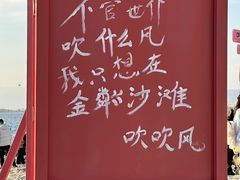 不管世界
吹什么风
我只想在
金粼沙滩
吹吹风